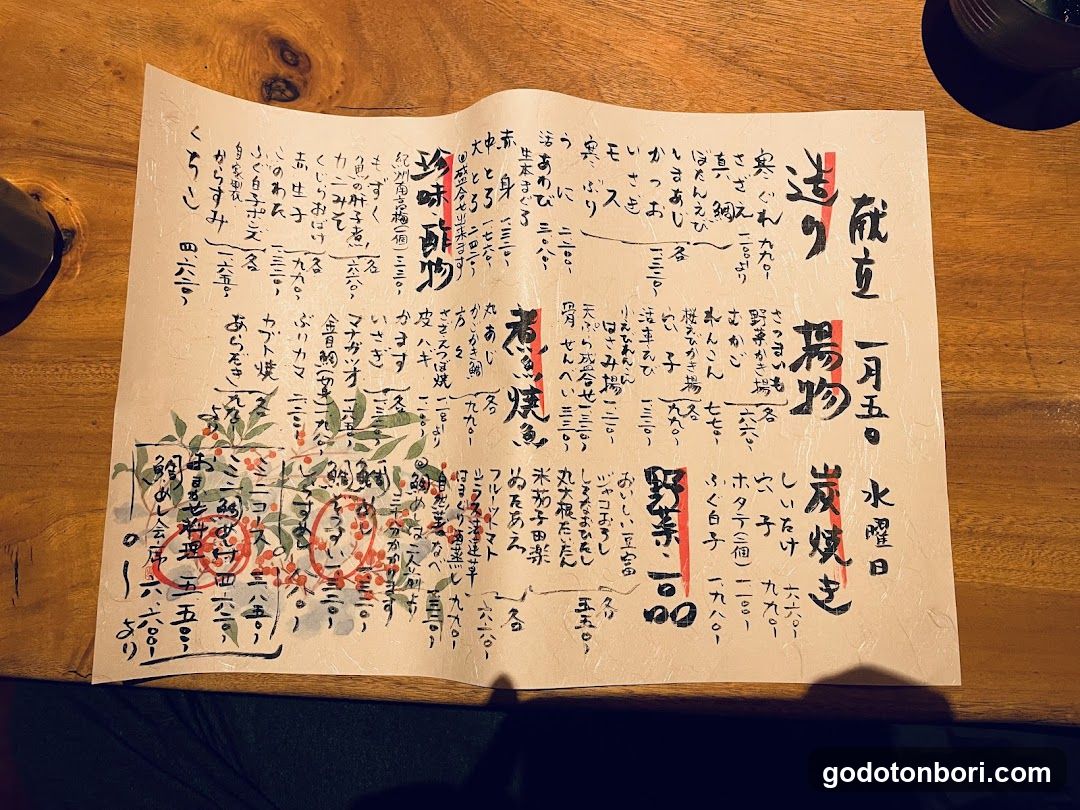 献立 一月五日 水曜日
造り
寒ぐれ 九九〇
さざえ 一一〇〇より
真鯛
ぼたんえび
しまあじ
かつお
いさき
モス
寒ぶり
各 一三二〇
うに 二二〇〇
活あわび 三〇八〇
生本まぐろ
赤身 一三二〇
中とろ 一七六〇
大とろ 二四二〇
盛合せ出来ます
珍味・酢物
紀州南高梅一個 三三〇
もずく
魚の肝子煮
カニみそ
各 六六〇
くじらおばけ
赤生子
各 九九〇
このわた
ふぐ白子ポンズ
自家製
からすみ
各 一六五〇
くちこ 四六二〇
揚物
さつまいも
野菜かき揚
むかご
各 六六〇
れんこん 七七〇
桜えびかき揚
穴子
各 九九〇
活車えび 一三二〇
小えびれんこん
はさみ揚
天ぷら盛合せ
骨せんべい 三三〇
煮魚・焼魚
丸あじ
かごかき鯛
各 九九〇
方々
さざえつぼ焼 一一〇〇より
皮ハギ
かます
いさぎ
各
マナガツオ 一六五〇
金目鯛
ぶりカマ
カブト焼
あらだき
各
より
炭焼き
しいたけ 六六〇
穴子 九九〇
ホタテ(二個) 一一〇〇
ふぐ白子 一九八〇
野菜・一品
おいしい豆富
ジャコおろし
しろなおひたし
丸大根たいたん
各 五五〇
米茄子田楽
ぬたあえ
フルーツトマト
シラス
各 六六〇
はまぐり酒蒸し 九九〇
なべ 一三二〇
鯛めしは二人前より
三十分かかります
鯛めし
ミニコース 三八五〇
ミニ鯛めし付 四六二〇
おまかせ料理 五五〇〇
鯛めし会席 六六〇〇
より
godotonbori.com